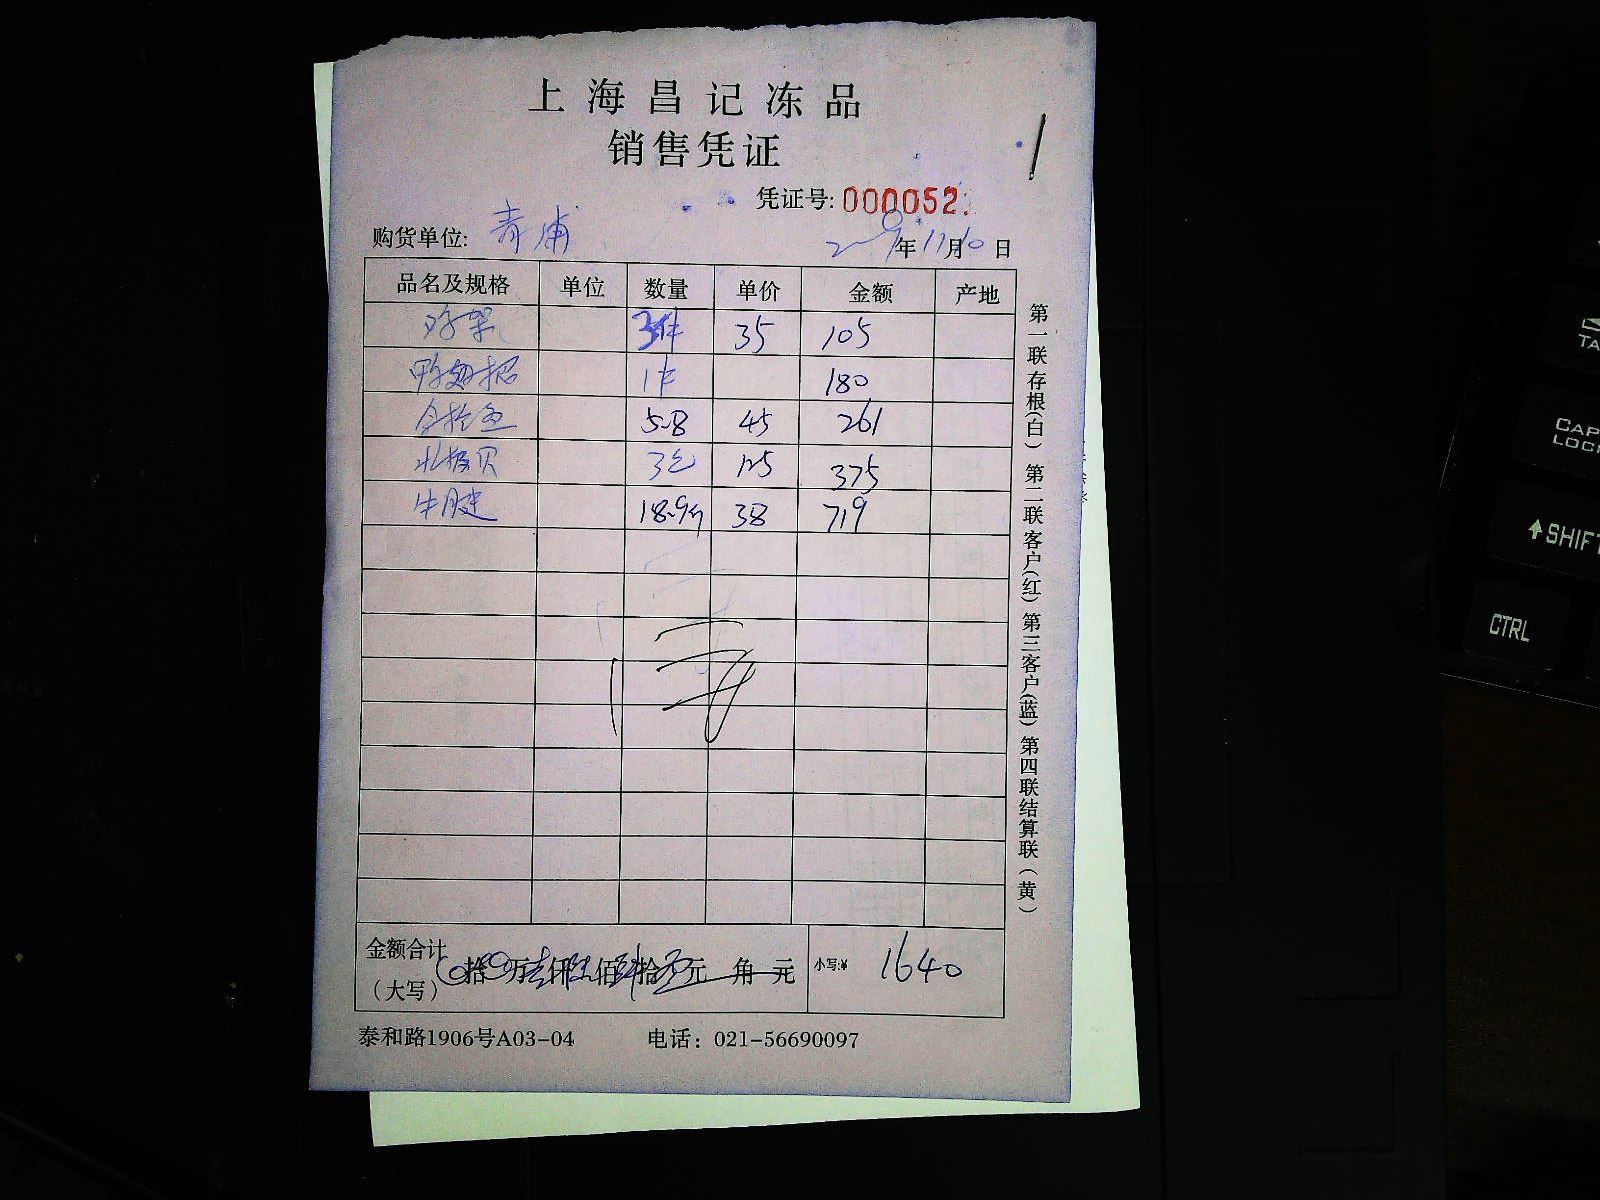 上海昌记冻品
销售凭证
凭证号: 000052
购货单位: 青浦 2009年11月10日
品名及规格 单位 数量 单价 金额 产地
鸡架 3件 35 105
鸭翅根 1件 180
5.8 45 261
北极贝 3包 125 375
牛腱 18.9斤 38 719
金额合计
(大写) 0拾0万壹仟陆佰肆拾元 角 元 小写:¥ 1640
泰和路1906号A03-04 电话: 021-56690097
第一联存根(白) 第二联客户(红) 第三客户(蓝) 第四联结算联(黄)
TA
CAP
LOC
SHIFT
CTRL